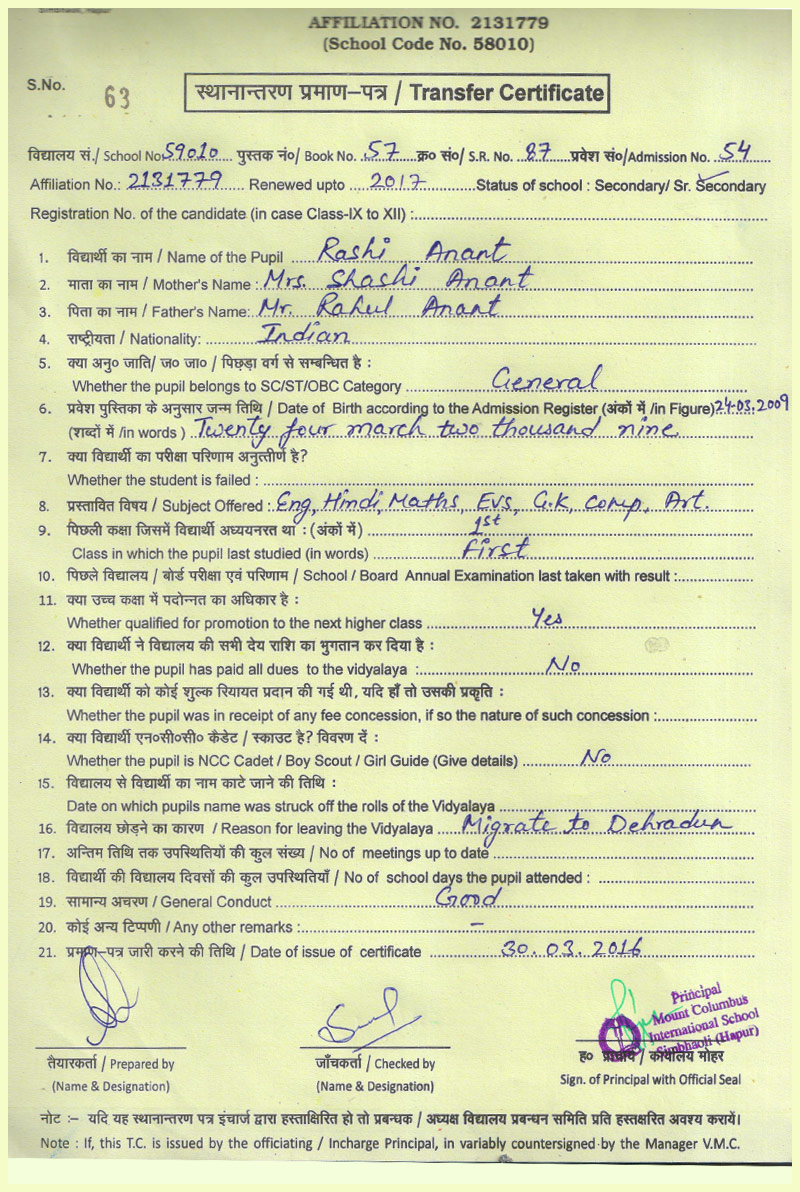 AFFILIATION NO. 2131779
(School Code No. 58010)
S.No. 63
स्थानान्तरण प्रमाण–पत्र / Transfer Certificate
विद्यालय सं./ School No 59010 पुस्तक नं०/ Book No. 57 क्र० सं०/ S.R. No. 87 प्रवेश सं०/Admission No. 54
Affiliation No.: 2131779 Renewed upto 2017 Status of school : Secondary/ Sr. Secondary
Registration No. of the candidate (in case Class-IX to XII) :
1. विद्यार्थी का नाम / Name of the Pupil Rashi Anant
2. माता का नाम / Mother's Name : Mrs. Shashi Anant
3. पिता का नाम / Father's Name: Mr. Rahul Anant
4. राष्ट्रीयता / Nationality: Indian
5. क्या अनु० जाति/ ज० जा० / पिछड़ा वर्ग से सम्बन्धित है :
Whether the pupil belongs to SC/ST/OBC Category General
6. प्रवेश पुस्तिका के अनुसार जन्म तिथि / Date of Birth according to the Admission Register (अंकों में /in Figure) 24.03.2009
(शब्दों में /in words ) Twenty four march two thousand nine
7. क्या विद्यार्थी का परीक्षा परिणाम अनुत्तीर्ण है?
Whether the student is failed :
8. प्रस्तावित विषय / Subject Offered : Eng, Hindi, Maths, EVS, G.K, Comp, Art.
9. पिछली कक्षा जिसमें विद्यार्थी अध्ययनरत था : (अंकों में) 1st
Class in which the pupil last studied (in words) First
10. पिछले विद्यालय / बोर्ड परीक्षा एवं परिणाम / School / Board Annual Examination last taken with result :
11. क्या उच्च कक्षा में पदोन्नत का अधिकार है :
Whether qualified for promotion to the next higher class Yes
12. क्या विद्यार्थी ने विद्यालय की सभी देय राशि का भुगतान कर दिया है :
Whether the pupil has paid all dues to the vidyalaya : No
13. क्या विद्यार्थी को कोई शुल्क रियायत प्रदान की गई थी, यदि हाँ तो उसकी प्रकृति :
Whether the pupil was in receipt of any fee concession, if so the nature of such concession :
14. क्या विद्यार्थी एन०सी०सी० कैडेट / स्काउट है? विवरण दें :
Whether the pupil is NCC Cadet / Boy Scout / Girl Guide (Give details) No
15. विद्यालय से विद्यार्थी का नाम काटे जाने की तिथि :
Date on which pupils name was struck off the rolls of the Vidyalaya
16. विद्यालय छोड़ने का कारण / Reason for leaving the Vidyalaya Migrate to Dehradun
17. अन्तिम तिथि तक उपस्थितियों की कुल संख्य / No of meetings up to date
18. विद्यार्थी की विद्यालय दिवसों की कुल उपस्थितियाँ / No of school days the pupil attended :
19. सामान्य अचरण / General Conduct Good
20. कोई अन्य टिप्पणी / Any other remarks : –
21. प्रमाण–पत्र जारी करने की तिथि / Date of issue of certificate 30.03.2016
Principal
Mount Columbus
International School
Simbhaoli (Hapur)
तैयारकर्ता / Prepared by जाँचकर्ता / Checked by ह० प्राचार्य / कार्यालय मोहर
(Name & Designation) (Name & Designation) Sign. of Principal with Official Seal
नोट :– यदि यह स्थानान्तरण पत्र इंचार्ज द्वारा हस्ताक्षिरित हो तो प्रबन्धक / अध्यक्ष विद्यालय प्रबन्धन समिति प्रति हस्तक्षरित अवश्य करायें।
Note : If, this T.C. is issued by the officiating / Incharge Principal, in variably countersigned by the Manager V.M.C.